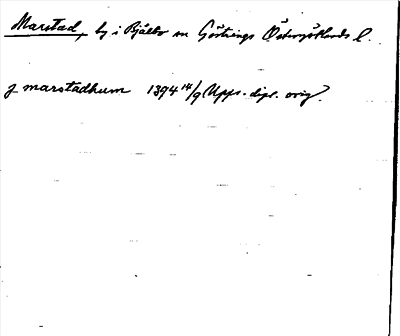 Marstad, by i Bjälbo sn Göstrings Östergötlands l.
j marstadhum 1394 14/9 (Upps. dipl. orig).